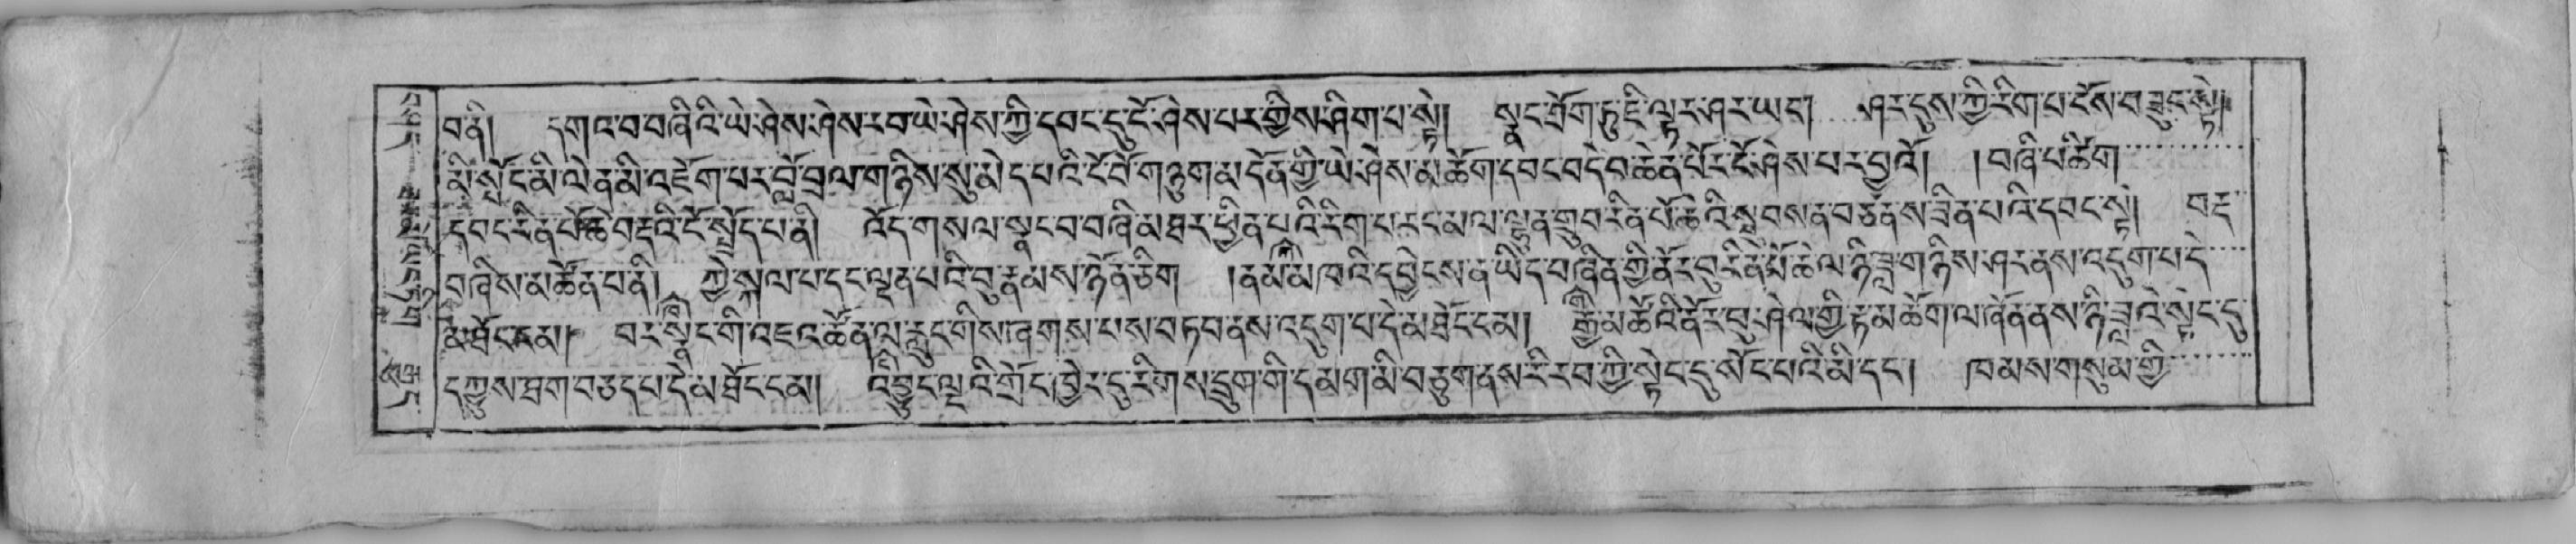 བནི། དགའ་བ་བཞིའི་ཡེ་ཤེས་ཤེས་རབ་ཡེ་ཤེས་ཀྱི་དབང་དུ་ངོ་ཤེས་པར་གྱིས་ཤིག་པ་སྟེ། སྣང་ཐོག་ཏུ་ཇི་ལྟར་ཤར་ཡང་། ཤར་དུས་ཀྱི་རིག་པ་ངོས་བཟུང་སྟེ།
མི་སྤོང་མི་ལེན་མི་འཇོག་པར་བློ་བྲལ་གཉིས་སུ་མེད་པའི་ངོ་བོ་གཉུག་མ་དོན་གྱི་ཡེ་ཤེས་མཆོག་དབང་བདེ་བ་ཆེན་པོར་ངོ་ཤེས་པར་བྱའོ། །བཞི་པ་ཚིག
དབང་རིན་པོ་ཆེ་བརྡའི་ངོ་སྤྲོད་པ་ནི། འོད་གསལ་སྣང་བ་བཞི་མཐར་ཕྱིན་པའི་རིག་པ་རང་མལ་ལྷུན་གྲུབ་རིན་པོ་ཆེའི་སྦུབས་ན་བཙན་ས་ཟིན་པའི་དབང་སྟེ། བརྡ
བཞིས་མཚོན་པ་ནི། ཀྱེ་སྐལ་པ་དང་ལྡན་པའི་བུ་རྣམས་ཉོན་ཅིག །ནམ་མཁའི་དབྱིངས་ན་ཡིད་བཞིན་གྱི་ནོར་བུ་རིན་པོ་ཆེ་ལ་ཉི་ཟླ་གཉིས་ཤར་ནས་འདུག་པ་དེ
མ་མཐོང་ངམ། བར་སྣང་གི་འཇའ་ཚོན་ལ་རླུང་གིས་ཞགས་པས་བཏབ་ནས་འདུག་པ་དེ་མ་མཐོང་ངམ། རྒྱ་མཚོའི་ནོར་བུ་ཤེལ་གྱི་རྟ་མཆོག་ལ་ཞོན་ནས་ཉི་ཟླའི་སྟེང་དུ
དཀྱུས་ཐག་བཅད་པ་དེ་མ་མཐོང་ངམ། འབྱུང་ལྔའི་གྲོང་ཁྱེར་དུ་རིགས་དྲུག་གི་དམག་མི་བཅུག་ནས་རི་རབ་ཀྱི་སྟེང་དུ་སོང་པའི་མི་དང་། ཁམས་གསུམ་གྱི